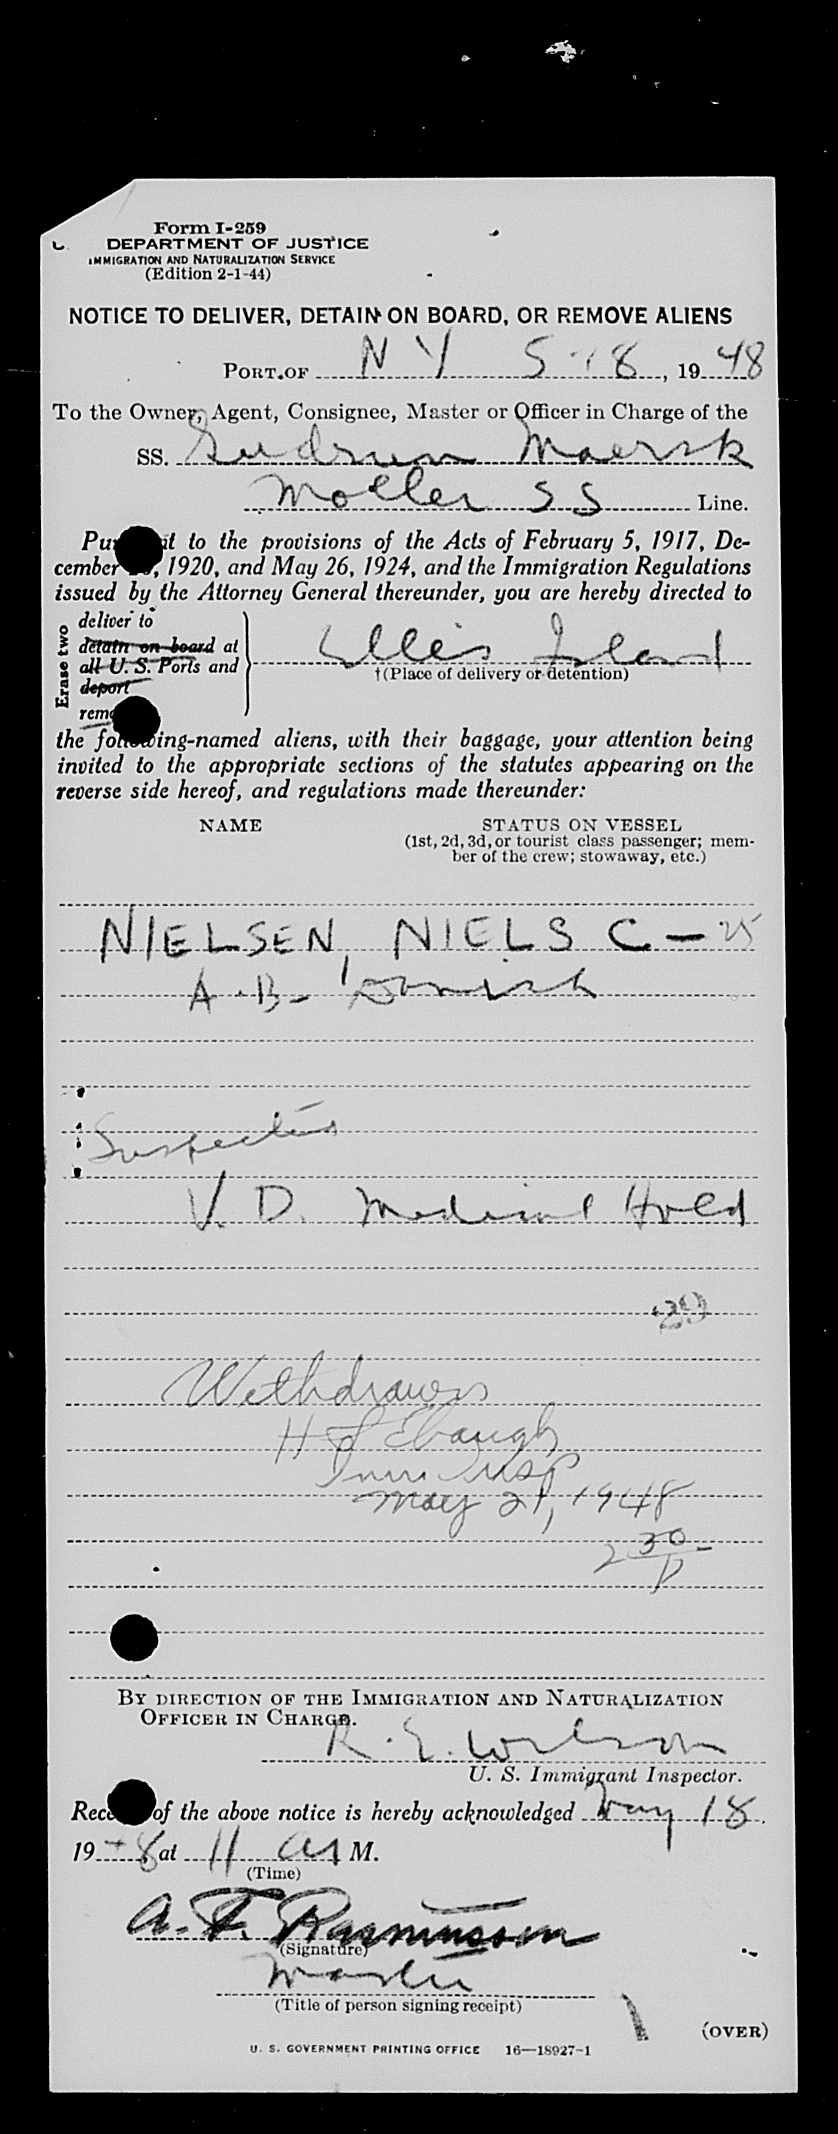 Form I-259
DEPARTMENT OF JUSTICE
IMMIGRATION AND NATURALIZATION SERVICE
(Edition 2-1-44)
NOTICE TO DELIVER, DETAIN ON BOARD, OR REMOVE ALIENS
PORT OF N Y 5-18, 1948
To the Owner, Agent, Consignee, Master or Officer in Charge of the
SS. Gudrun Maersk
Moller SS Line.
Pursuant to the provisions of the Acts of February 5, 1917, De-
cember 26, 1920, and May 26, 1924, and the Immigration Regulations
issued by the Attorney General thereunder, you are hereby directed to
Erase two
deliver to
detain on board at
all U. S. Ports and
deport
remove
Ellis Island
†(Place of delivery or detention)
the following-named aliens, with their baggage, your attention being
invited to the appropriate sections of the statutes appearing on the
reverse side hereof, and regulations made thereunder:
NAME STATUS ON VESSEL
(1st, 2d, 3d, or tourist class passenger; mem-
ber of the crew; stowaway, etc.)
NIELSEN, NIELS C - 25
A.B- Danish
Suspected
V.D. Medical Hold
29
Withdrawn
H S Ebaugh
Imm Insp
May 21, 1948
2 30 P
BY DIRECTION OF THE IMMIGRATION AND NATURALIZATION
OFFICER IN CHARGE.
R. E. Wilson
U. S. Immigrant Inspector.
Receipt of the above notice is hereby acknowledged May 18,
1948 at 11 A M.
(Time)
A. F. Rasmussen
(Signature)
Master
(Title of person signing receipt)
(OVER)
U. S. GOVERNMENT PRINTING OFFICE 16—18927-1